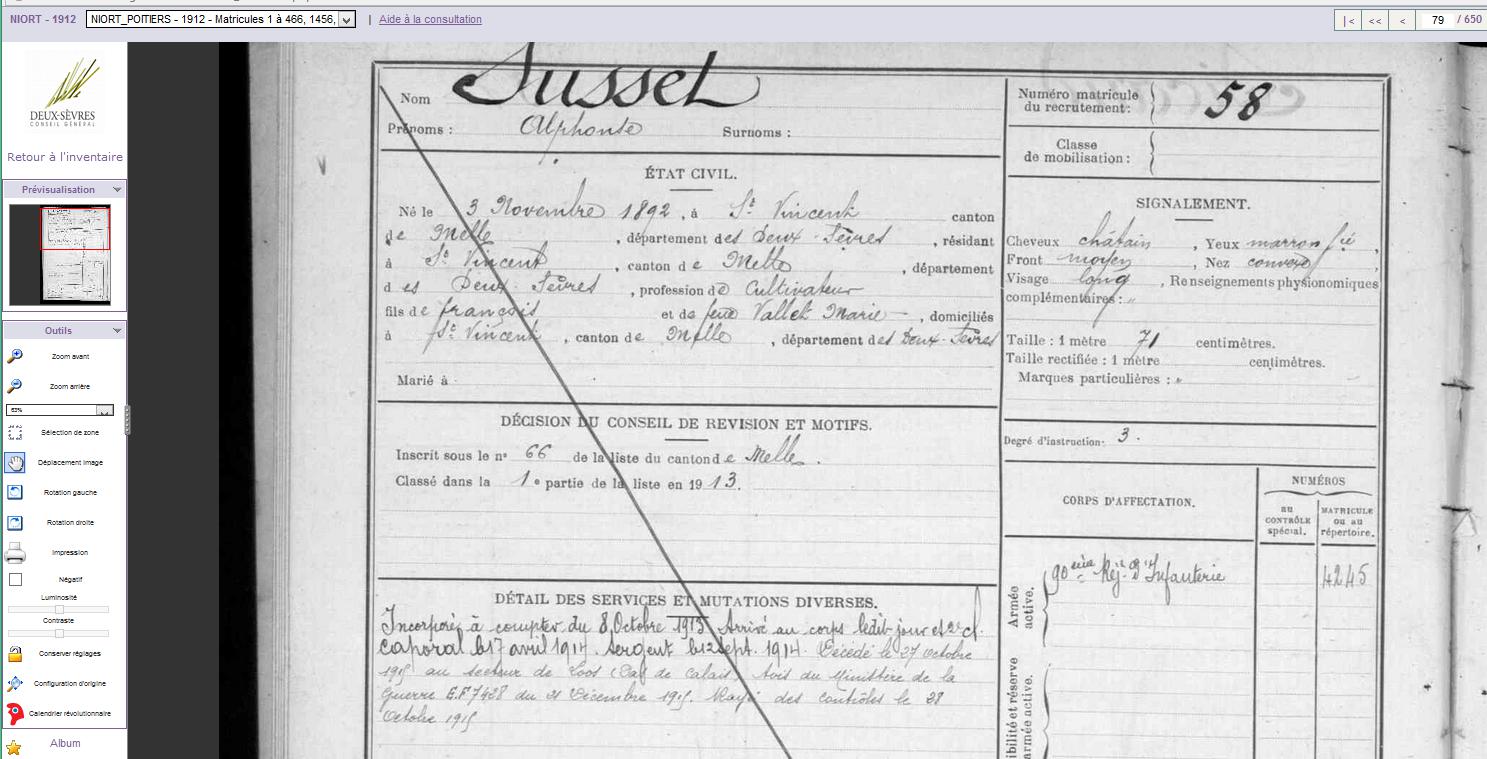 NIORT - 1912
NIORT_POITIERS - 1912 - Matricules 1 à 466, 1456,
| Aide à la consultation
|< << < 79 / 650
DEUX-SÈVRES
CONSEIL GÉNÉRAL
Retour à l'inventaire
Prévisualisation
Outils
Zoom avant
Zoom arrière
63%
Sélection de zone
Déplacement image
Rotation gauche
Rotation droite
Impression
Négatif
Luminosité
Contraste
Conserver réglages
Configuration d'origine
Calendrier révolutionnaire
Album
Nom Susset
Prénoms : Alphonse Surnoms :
Numéro matricule
du recrutement : 58
Classe
de mobilisation :
ÉTAT CIVIL.
Né le 3 Novembre 1892, à St Vincent canton
de Melle, département des Deux-Sèvres, résidant
à St Vincent, canton de Melle, département
des Deux-Sèvres, profession de Cultivateur
fils de françois et de feue Vallet Marie, domiciliés
à St Vincent, canton de Melle, département des Deux-Sèvres
Marié à
SIGNALEMENT.
Cheveux châtain, Yeux marron
Front moyen, Nez convexe,
Visage long, Renseignements physionomiques
complémentaires : "
Taille : 1 mètre 71 centimètres.
Taille rectifiée : 1 mètre centimètres.
Marques particulières : "
Degré d'instruction. 3.
DÉCISION DU CONSEIL DE REVISION ET MOTIFS.
Inscrit sous le n° 66 de la liste du canton de Melle.
Classé dans la 1e partie de la liste en 1913.
CORPS D'AFFECTATION.
NUMÉROS
au
CONTRÔLE
spécial.
MATRICULE
ou au
répertoire.
Armée
active.
90ème Rég. d'Infanterie 4245
ibilité et réserve
armée active.
DÉTAIL DES SERVICES ET MUTATIONS DIVERSES.
Incorporé à compter du 8 Octobre 1913 Arrivé au corps ledit jour et 2e cl.
Caporal le 17 avril 1914. Sergent le 12 sept. 1914. Décédé le 27 octobre
1915 au secteur de Loos (Pas de Calais) Avis du Ministère de la
Guerre du 21 Décembre 1915. Rayé des contrôles le 28
Octobre 1915